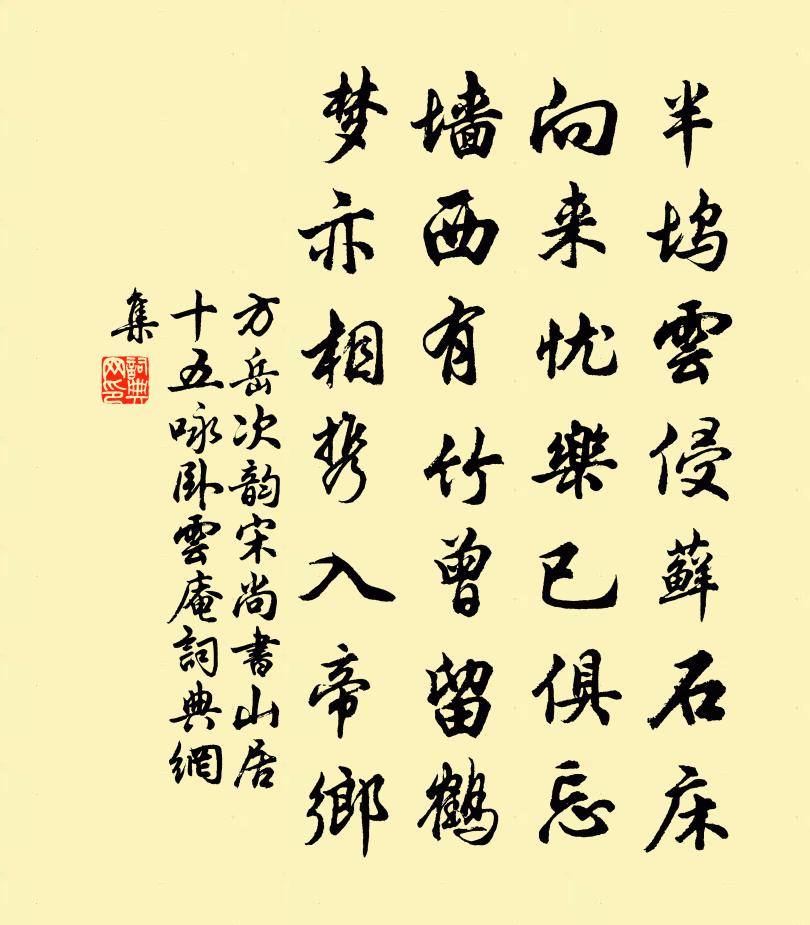 半坞雲侵蘚石床
向来忧樂已俱忘
墙西有竹曾留鶴
梦亦相携入帝鄉
方岳次韵宋尚書山居
十五咏卧雲庵詞典網
集
詞典網印